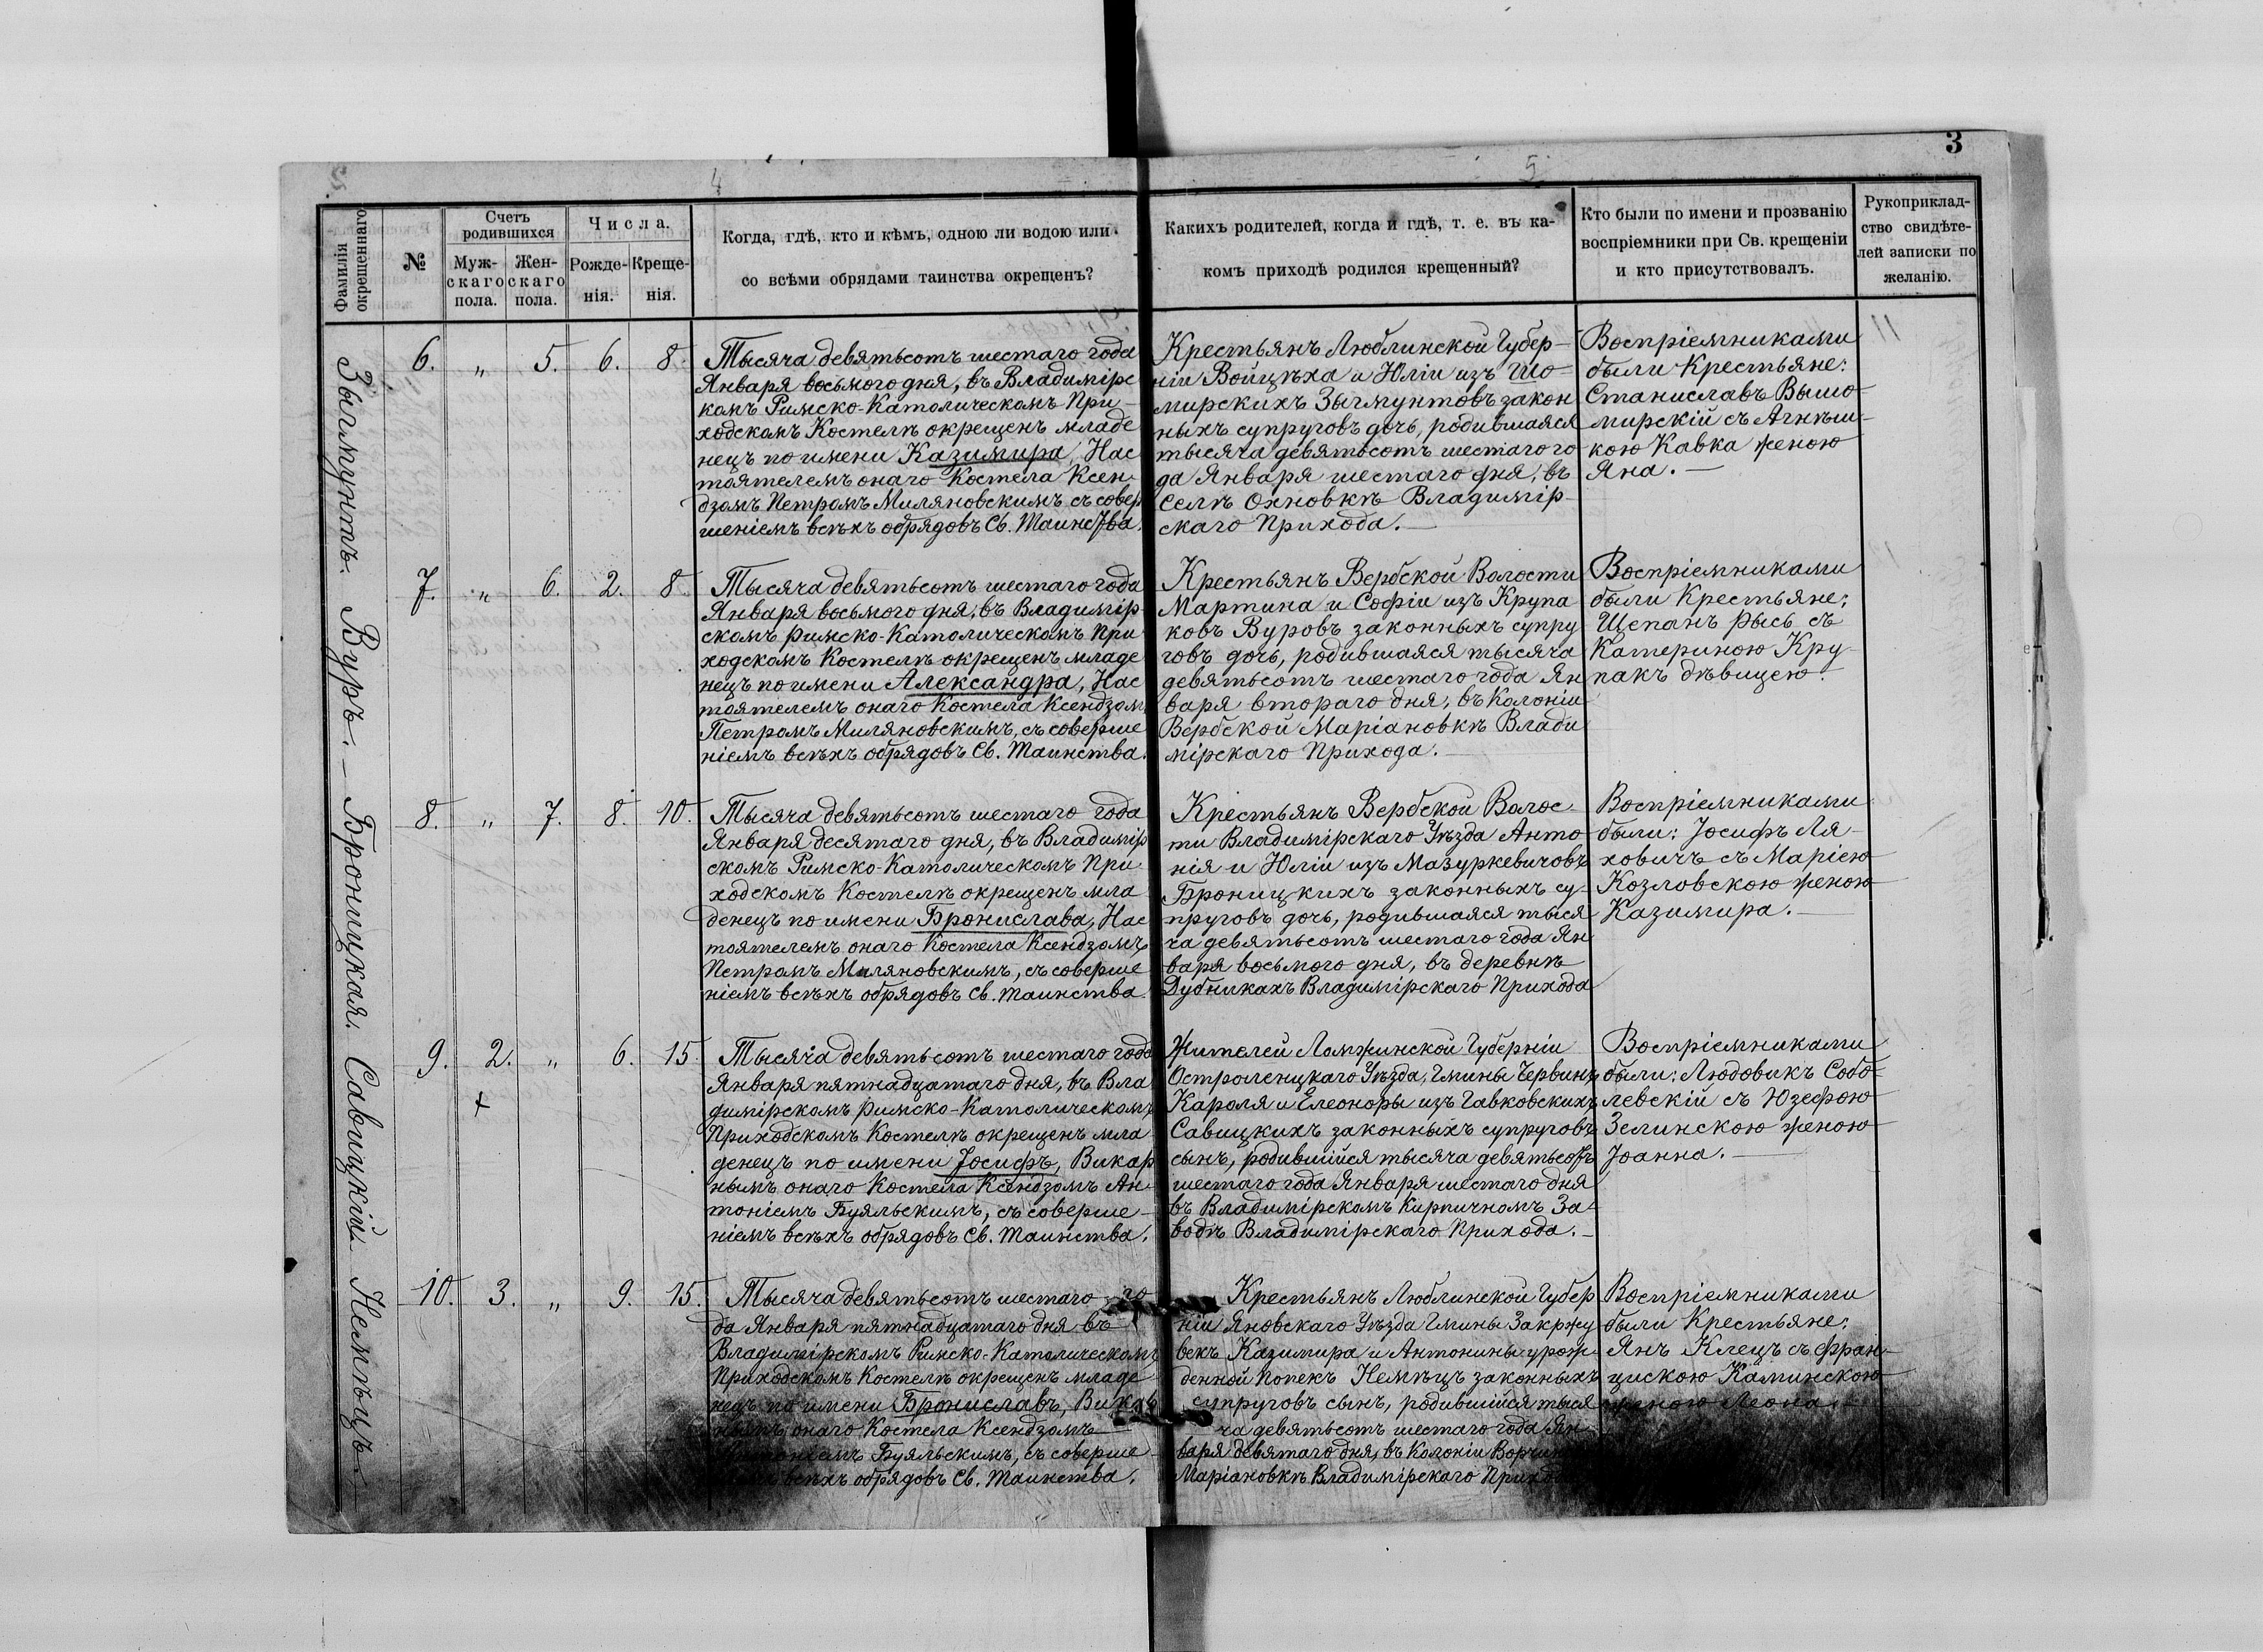 3
4
5
Фамилія окрещеннаго
№
Счетъ родившихся
Муж-скаго пола.
Жен-скаго пола.
Числа.
Рожде-нія.
Креще-нія.
Когда, гдѣ, кто и кѣмъ, одною ли водою или
со всѣми обрядами таинства окрещенъ?
Какихъ родителей, когда и гдѣ, т. е. въ ка-
комъ приходѣ родился крещенный?
Кто были по имени и прозванію
воспріемники при Св. крещеніи
и кто присутствовалъ.
Рукоприклад-
ство свидѣте-
лей записки по
желанію.
Зыгмунтъ.
6. „ 5. 6. 8.
Тысяча девятьсотъ шестаго года
Января восьмого дня, въ Владимірс
комъ Римско-Католическомъ При-
ходскомъ Костелѣ окрещенъ младе
нецъ по имени Казимира, Нас
тоятелемъ онаго Костела Ксен-
дзомъ Петромъ Миляновскимъ съ совер
шеніемъ всѣхъ обрядовъ Св. Таинства.
Крестьянъ Люблинской Губер-
ніи Войцѣха и Юліи изъ Шо
мирскихъ Зыгмунтовъ закон
ныхъ супруговъ дочь, родившаяся
тысяча девятьсотъ шестаго го
да Января шестаго дня, въ
Селѣ Охновкѣ Владимір-
скаго Прихода.—
Воспріемниками
были Крестьяне:
Станиславъ Вышо-
мирскій съ Агнѣш-
кою Кавка женою
Яна.—
Вуръ.—
7. „ 6. 2. 8.
Тысяча девятьсотъ шестаго года
Января восьмого дня, въ Владимір
скомъ Римско-Католическомъ При
ходскомъ Костелѣ окрещенъ младе
нецъ по имени Александра, Нас
тоятелемъ онаго Костела Ксендзом
Петромъ Миляновскимъ, съ соверше
ніемъ всѣхъ обрядовъ Св. Таинства.
Крестьянъ Вербской Волости
Мартина и Софіи изъ Крупа
ковъ Вуровъ законныхъ супру
говъ дочь, родившаяся тысяча
девятьсотъ шестаго года Ян
варя втораго дня, въ Колоніи
Вербской Маріановкѣ Влади
мірскаго Прихода.—
Воспріемниками
были Крестьяне:
Щепанъ Рысь съ
Катериною Кру-
пакъ дѣвицею.
Броницкая.
8. „ 7. 8. 10.
Тысяча девятьсотъ шестаго года
Января десятаго дня, въ Владимір
скомъ Римско-Католическомъ При-
ходскомъ Костелѣ окрещенъ мла
денецъ по имени Бронислава, Нас
тоятелемъ онаго Костела Ксендзомъ
Петромъ Миляновскимъ, съ соверше
ніемъ всѣхъ обрядовъ Св. Таинства.
Крестьянъ Вербской Волос-
ти Владимірскаго Уѣзда Анто-
нія и Юліи изъ Мазуркевичовъ
Броницкихъ законныхъ су-
пруговъ дочь, родившаяся тыся
ча девятьсотъ шестаго года Ян
варя восьмого дня, въ деревнѣ
Дубникахъ Владимірскаго Прихода
Воспріемниками
были: Іосифъ Ля-
ховичъ съ Маріею
Козловскою женою
Казимира.—
Савицкій.
9. 2. „ 6. 15.
+
Тысяча девятьсотъ шестаго года
Января пятнадцатаго дня, въ Вла
димірскомъ Римско-Католическомъ
Приходскомъ Костелѣ окрещенъ мла
денецъ по имени Іосифъ, Викар
нымъ онаго Костела Ксендзомъ Ан-
тоніемъ Буяльскимъ, съ соверше-
ніемъ всѣхъ обрядовъ Св. Таинства.
Жителей Ломжинской Губерніи
Остроленцкаго Уѣзда, Гмины Червинъ
Кароля и Елеоноры изъ Гавковскихъ
Савицкихъ законныхъ супруговъ
сынъ, родившійся тысяча девятьсотъ
шестаго года Января шестаго дня
въ Владимірскомъ Кирпичномъ За-
водѣ Владимірскаго Прихода.—
Воспріемниками
были: Людовикъ Собо-
левскій съ Юзефою
Зелинскою женою
Іоанна.—
Немѣцъ.—
10. 3. „ 9. 15.
Тысяча девятьсотъ шестаго го
да Января пятнадцатаго дня въ
Владимірскомъ Римско-Католическомъ
Приходскомъ Костелѣ окрещенъ младе
нецъ по имени Брониславъ, Викар
нымъ онаго Костела Ксендзомъ
Антоніемъ Буяльскимъ, съ соверше-
всѣхъ обрядовъ Св. Таинства.
Крестьянъ Люблинской Губер
ніи Яновскаго Уѣзда Гмины Закржу
векъ Казимира и Антонины урож-
денной Попекъ Немѣцъ законныхъ
супруговъ сынъ, родившійся тыся
ча девятьсотъ шестаго года Ян
варя девятаго дня, въ Колоніи
Маріановкѣ Владимірскаго
Воспріемниками
были Крестьяне:
Янъ Клецъ съ Фран-
цискою Каминскою
женою Леона.—